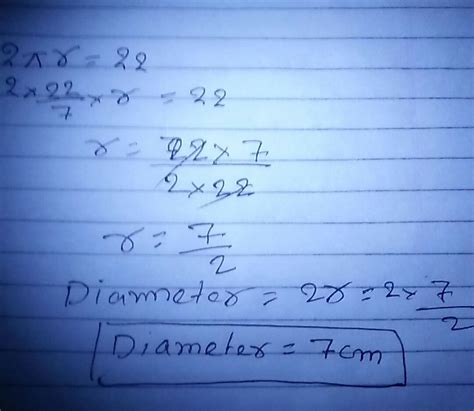 2πr = 22
2 × 22/7 × r = 22
r = 22 × 7 / 2 × 22
r = 7/2
Diameter = 2r = 2 × 7/2
Diameter = 7cm